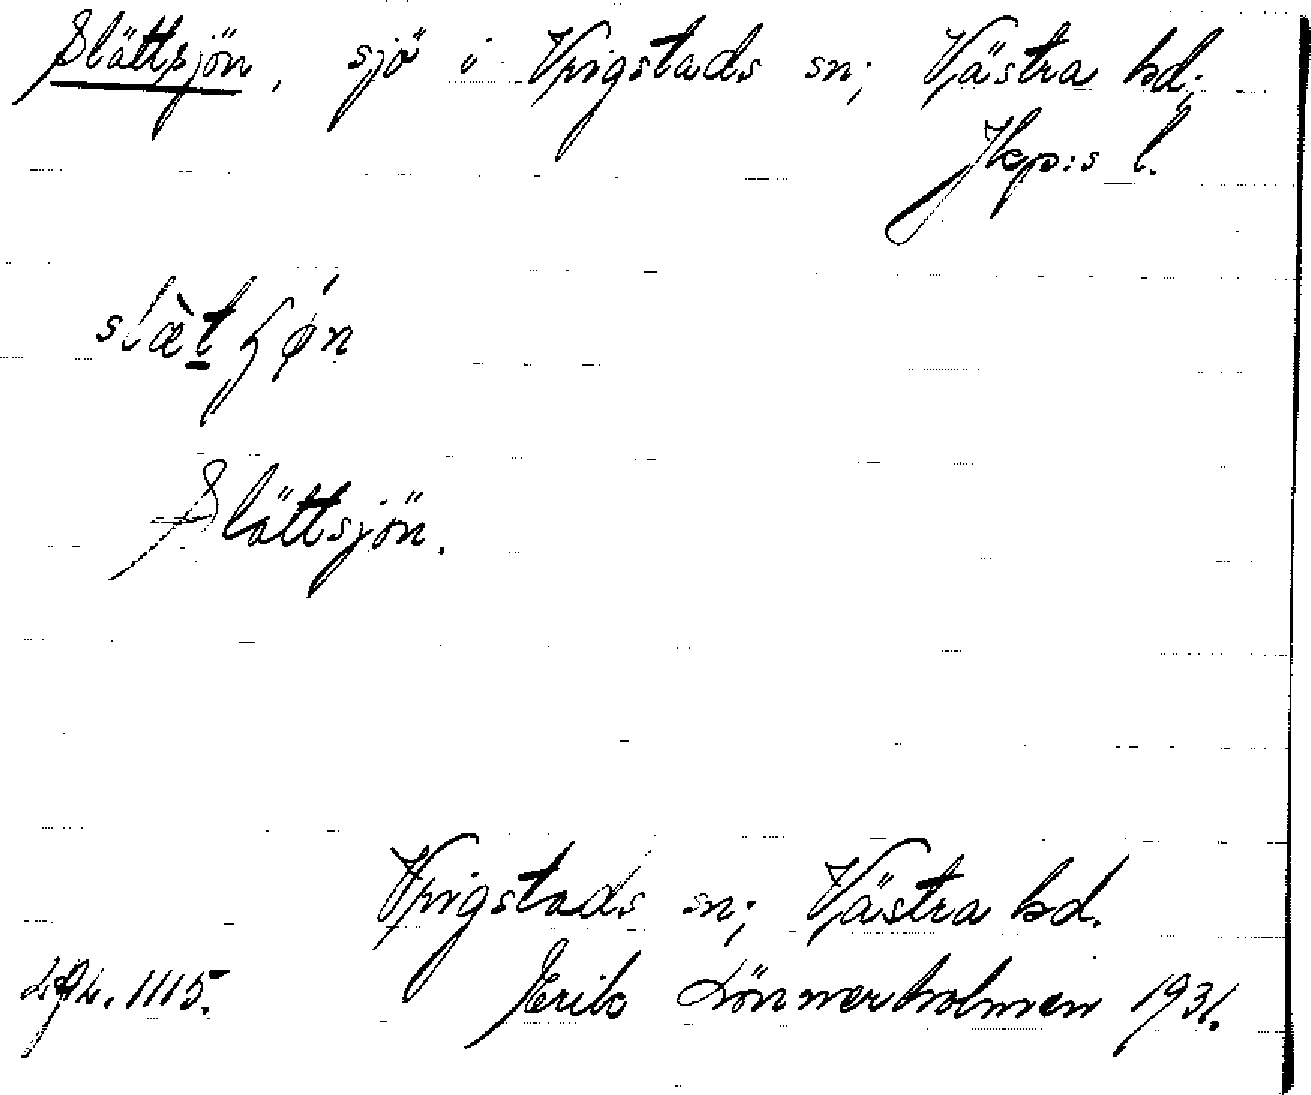 Slättsjön, sjö i Vrigstads sn; Västra hd;
Jkp:s l.
Slättsjön.
Vrigstads sn; Västra hd.
1115. Erik Lönnerholmen 1931.